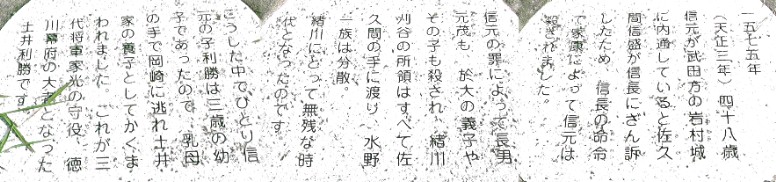 一五七五年
(天正三年) 四十八歳
信元が武田方の岩村城
に内通していると佐久
間信盛が信長にざん訴
したため 信長の命令
で家康によって信元は
殺されました。
信元の罪によって長男
元茂も 於大の義子や
その子も殺され 緒川
刈谷の所領はすべて佐
久間の手に渡り 水野
一族は分散。
緒川にとって無残な時
代となったのです。
こうした中でひとり信
元の子利勝は三歳の幼
子であったので 乳母
の手で岡崎に逃れ土井
家の養子としてかくま
われました これが三
代将軍家光の守役、徳
川幕府の大老となった
土井利勝です